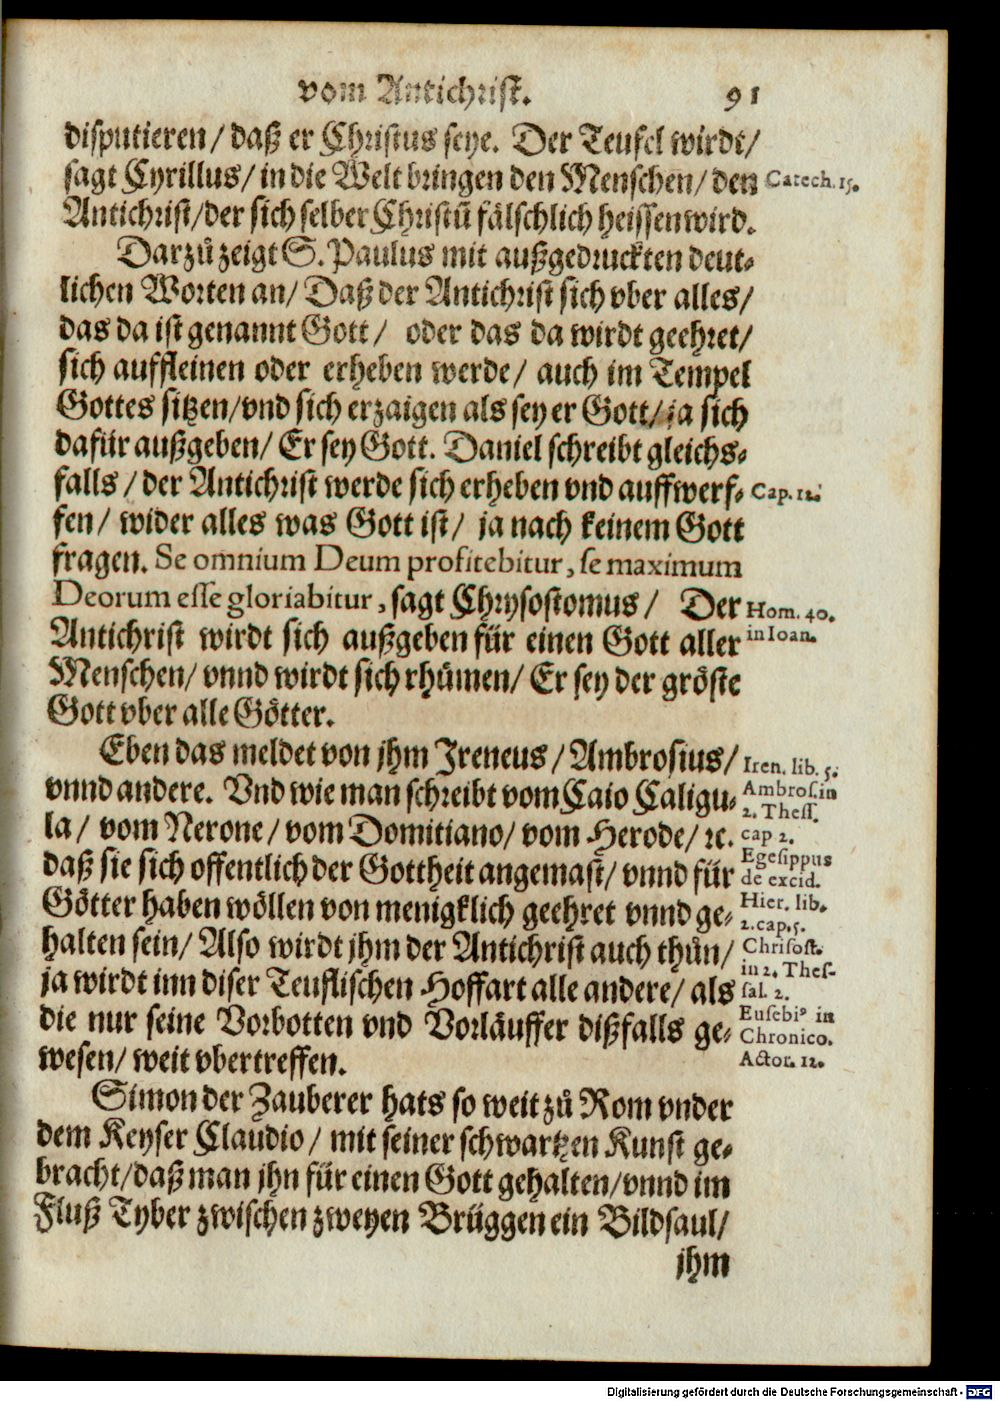 vom Antichrist. 91
disputieren / daß er Christus seye. Der Teufel wirdt /
sagt Cyrillus / in die Welt bringen den Menschen / den
Catech. 15.
Antichrist / der sich selber Christū fälschlich heissen wird.
Darzů zeigt S. Paulus mit außgedruckten deut-
lichen Worten an / Daß der Antichrist sich vber alles /
das da ist genannt Gott / oder das da wirdt geehret /
sich auffleinen oder erheben werde / auch im Tempel
Gottes sitzen / vnd sich erzaigen als sey er Gott / ja sich
dafür außgeben / Er sey Gott. Daniel schreibt gleichs-
falls / der Antichrist werde sich erheben vnd auffwerf-
Cap. 12.
fen / wider alles was Gott ist / ja nach keinem Gott
fragen. Se omnium Deum profitebitur, se maximum
Deorum esse gloriabitur, sagt Chrysostomus / Der
Hom. 40.
Antichrist wirdt sich außgeben für einen Gott aller
in Ioan.
Menschen / vnnd wirdt sich rhůmen / Er sey der gröste
Gott vber alle Götter.
Eben das meldet von jhm Jreneus / Ambrosius /
Iren. lib. 5.
vnnd andere. Vnd wie man schreibt vom Caio Caligu-
Ambros. in
2. Thess.
la / vom Nerone / vom Domitiano / vom Herode / ꝛc.
cap 2.
daß sie sich offentlich der Gottheit angemast / vnnd für
Egesippus
de excid.
Götter haben wöllen von menigklich geehret vnnd ge-
Hier. lib.
2. cap. 5.
halten sein / Also wirdt jhm der Antichrist auch thůn /
Chrisost.
in 2. Thes-
ja wirdt inn diser Teuflischen Hoffart alle andere / als
sal. 2.
die nur seine Vorbotten vnd Vorläuffer dißfalls ge-
Eusebi⁹ in
Chronico.
wesen / weit vbertreffen.
Actor. 12.
Simon der Zauberer hats so weit zů Rom vnder
dem Keyser Claudio / mit seiner schwartzen Kunst ge-
bracht / daß man jhn für einen Gott gehalten / vnnd im
Fluß Tyber zwischen zweyen Brüggen ein Bildsaul /
jhm
Digitalisierung gefördert durch die Deutsche Forschungsgemeinschaft - DFG